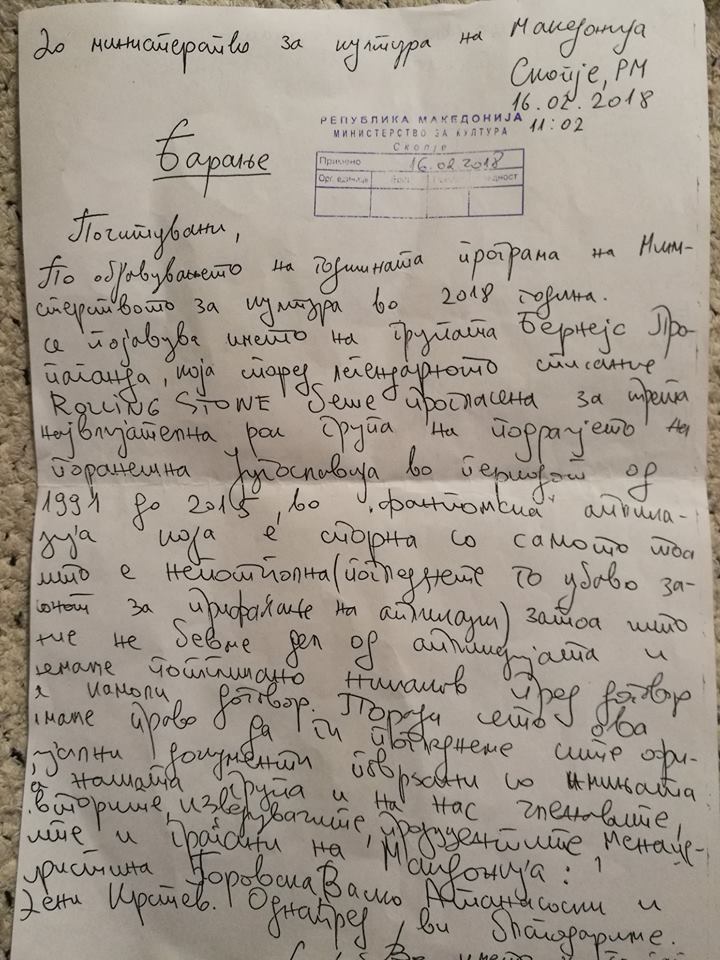 До министерство за култура на Македонија
Скопје, РМ
16.02.2018
11:02
РЕПУБЛИКА МАКЕДОНИЈА
МИНИСТЕРСТВО ЗА КУЛТУРА
Скопје
Примено 16.02.2018
Орг. единица Број
Барање
Почитувани,
По објавувањето на годишната програма на Мини-
стерството за култура во 2018 година.
се појавува името на групата Бернејс Про-
паганда, која според легендарното списание
ROLLING STONE беше прогласена за трета
највлијателна рок група на подрачјето на
поранешна Југославија во периодот од
1991 до 2015, во "фантомска" аплика-
ција која е спорна со самото тоа
што е непотполна (погледнете го убаво за-
конот за прифаќање на апликации) затоа што
ние не бевме дел од апликацијата и
немаме потпишано никаков пред договор
и камоли договор. Поради сето ова
имаме право да ги погледнеме сите офи-
цјални документи поврзани со имињата
на нашата група и на нас членовите,
вторите, изведувачите, продуцентите, менаџе-
рите и граѓани на Македонија:
Кристина Горовска, Васко Атанасоски и
Дени Крстев. Однапред, ви благодариме.